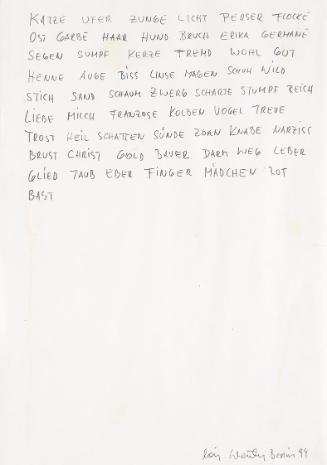 KATZE UFER ZUNGE LICHT PERSER FLOCKE
OST GARBE HAAR HUND BRUCH ERIKA GERMANE
SEGEN SUMPF KERZE FREMD WOHL GUT
HENNE AUGE BISS LINSE MAGEN SCHUH WILD
STICH SAND SCHAUM ZWERG SCHARTE STUMPF REICH
LIEBE MILCH FRANZOSE KOLBEN VOGEL TREUE
TROST HEIL SCHATTEN SÜNDE ZORN KNABE NARZISS
BRUST CHRIST GOLD BAUER DARM WEG LEBER
GLIED TAUB EBER FINGER MÄDCHEN ROT
BAST